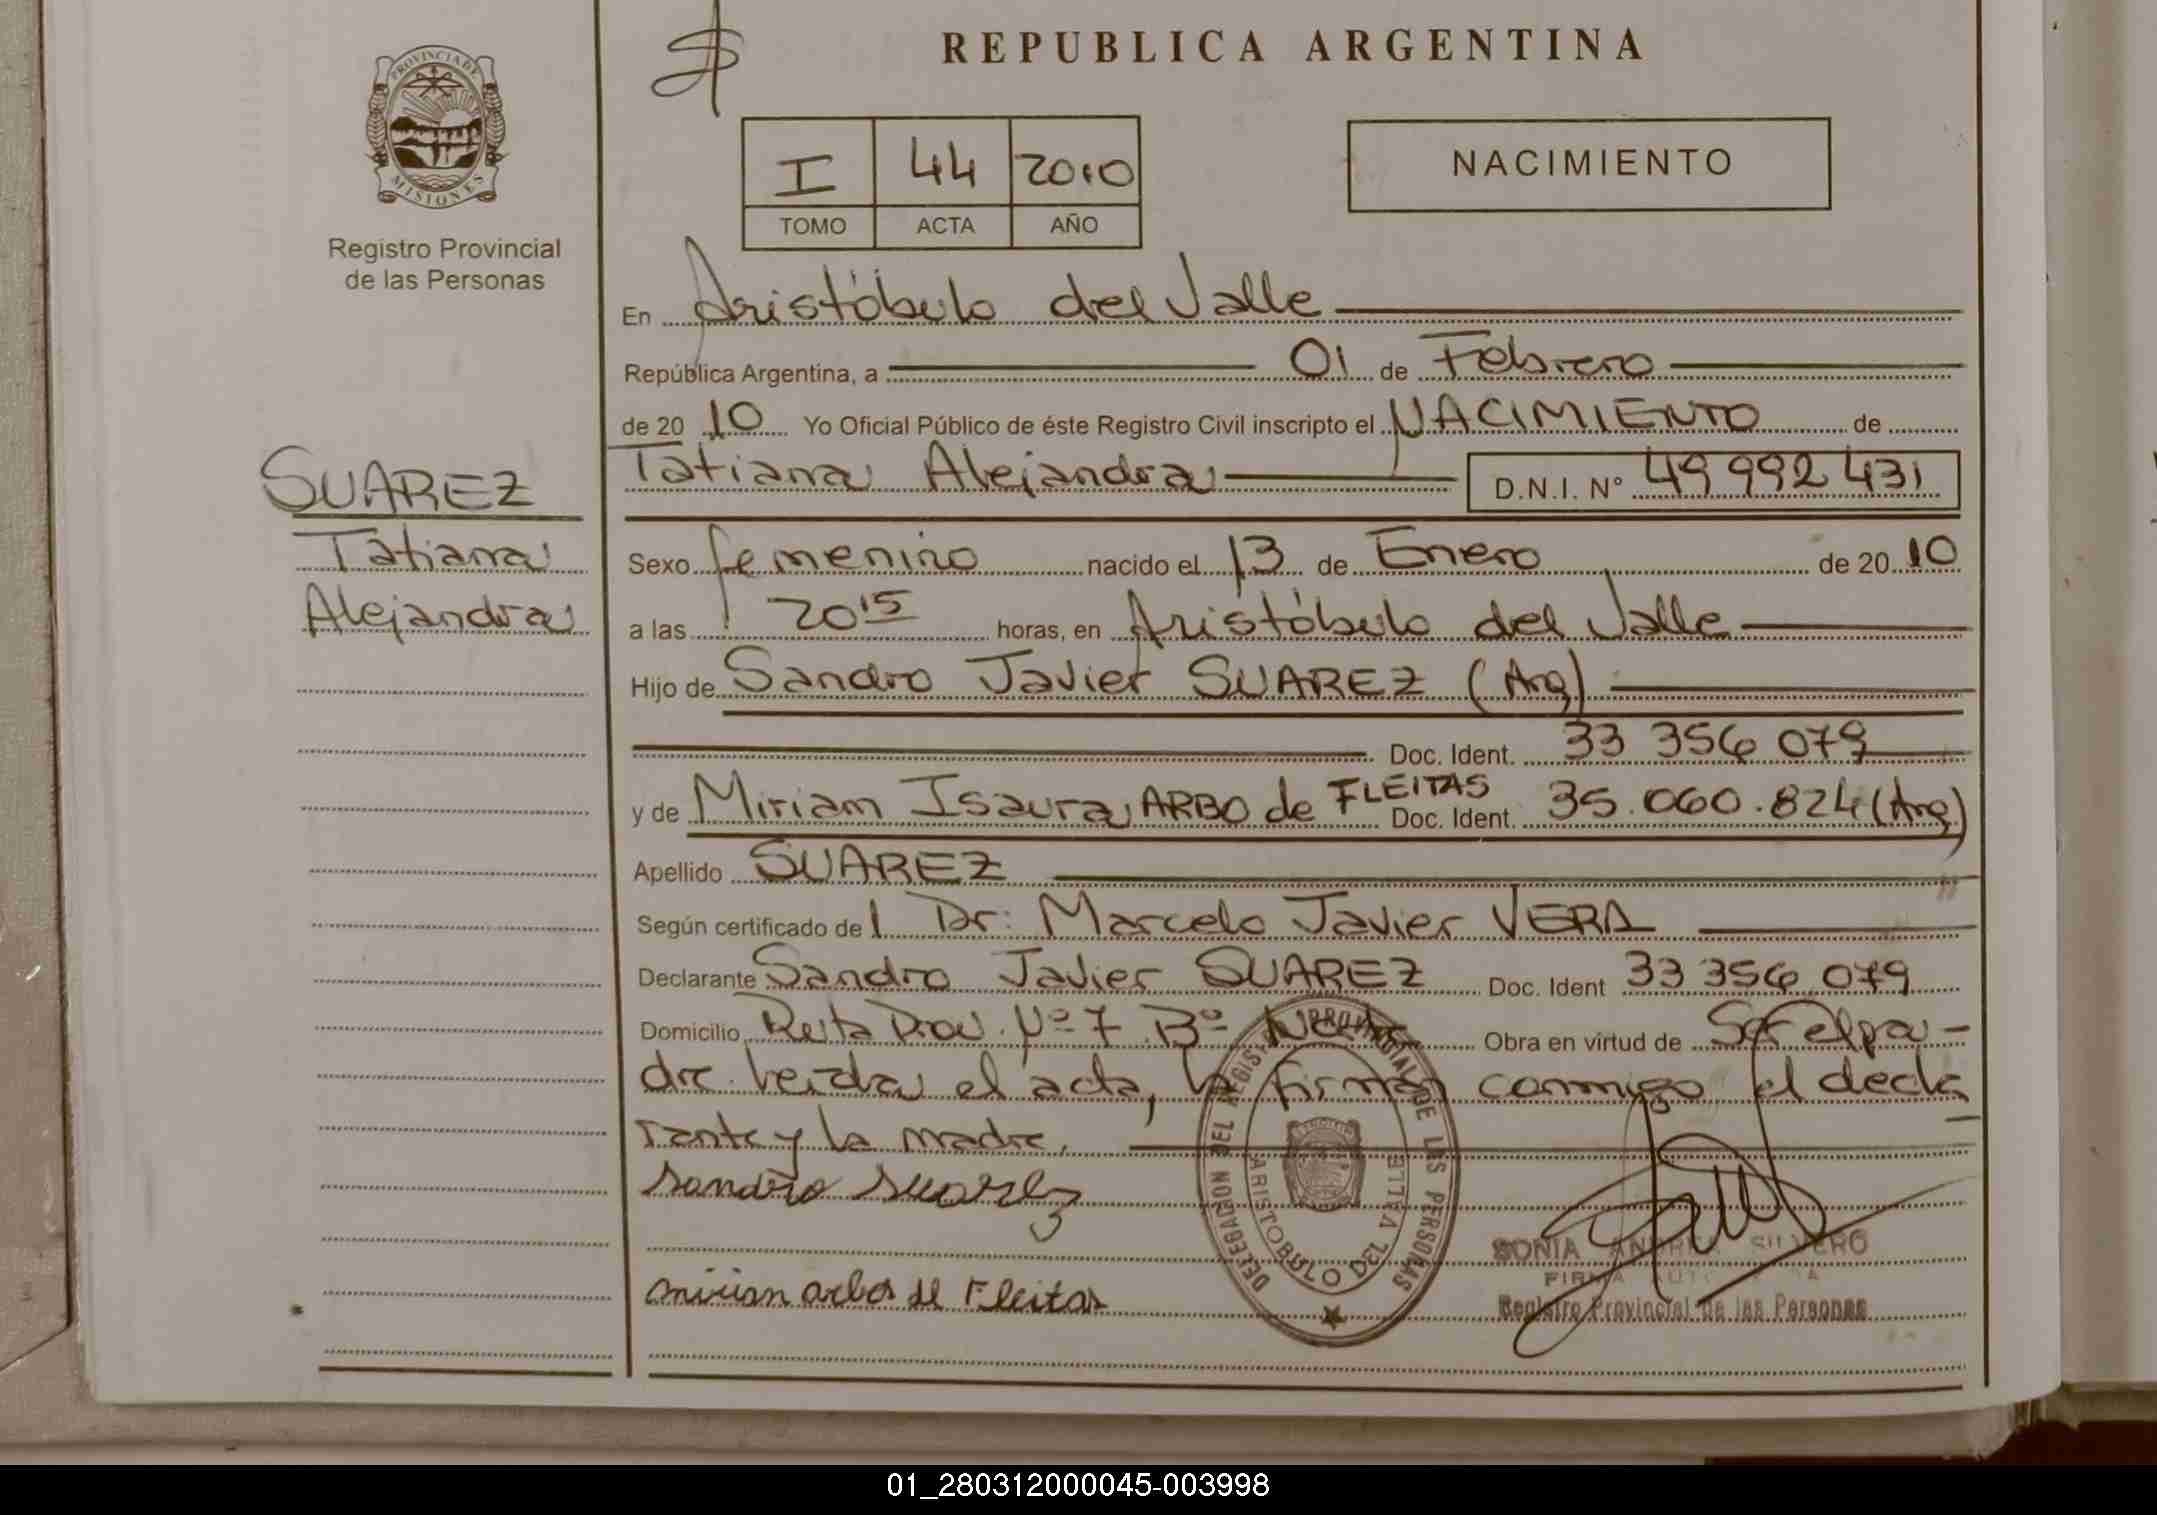 REPUBLICA ARGENTINA
PROVINCIA DE MISIONES
Registro Provincial
de las Personas
I 44 2010
TOMO ACTA AÑO
NACIMIENTO
En Aristóbulo del Valle
República Argentina, a 01 de Febrero
de 20 10 Yo Oficial Público de éste Registro Civil inscripto el NACIMIENTO de
Tatiana Alejandra D.N.I. N° 49 992 431
SUAREZ
Tatiana
Alejandra
Sexo femenino nacido el 13 de Enero de 20 10
a las 20 15 horas, en Aristóbulo del Valle
Hijo de Sandro Javier SUAREZ (Arg)
Doc. Ident. 33 356 079
y de Miriam Isaura ARBO de FLEITAS Doc. Ident. 35.060.824 (Arg)
Apellido SUAREZ
Según certificado de l Dr: Marcelo Javier VERA
Declarante Sandro Javier SUAREZ Doc. Ident 33 356 079
Domicilio Ruta Prov. Nº 7 Bº Obra en virtud de Ser el pa-
dre. Leida el acta, la firman conmigo el decla
rante y la madre.
Sandro Suarez
DELEGACION DEL REGISTRO PROVINCIAL DE LAS PERSONAS
ARISTOBULO DEL VALLE
SONIA ANDREA SILVERO
FIRMA AUTORIZADA
Registro Provincial de las Personas
Mirian arbo de Fleitas
01_280312000045-003998